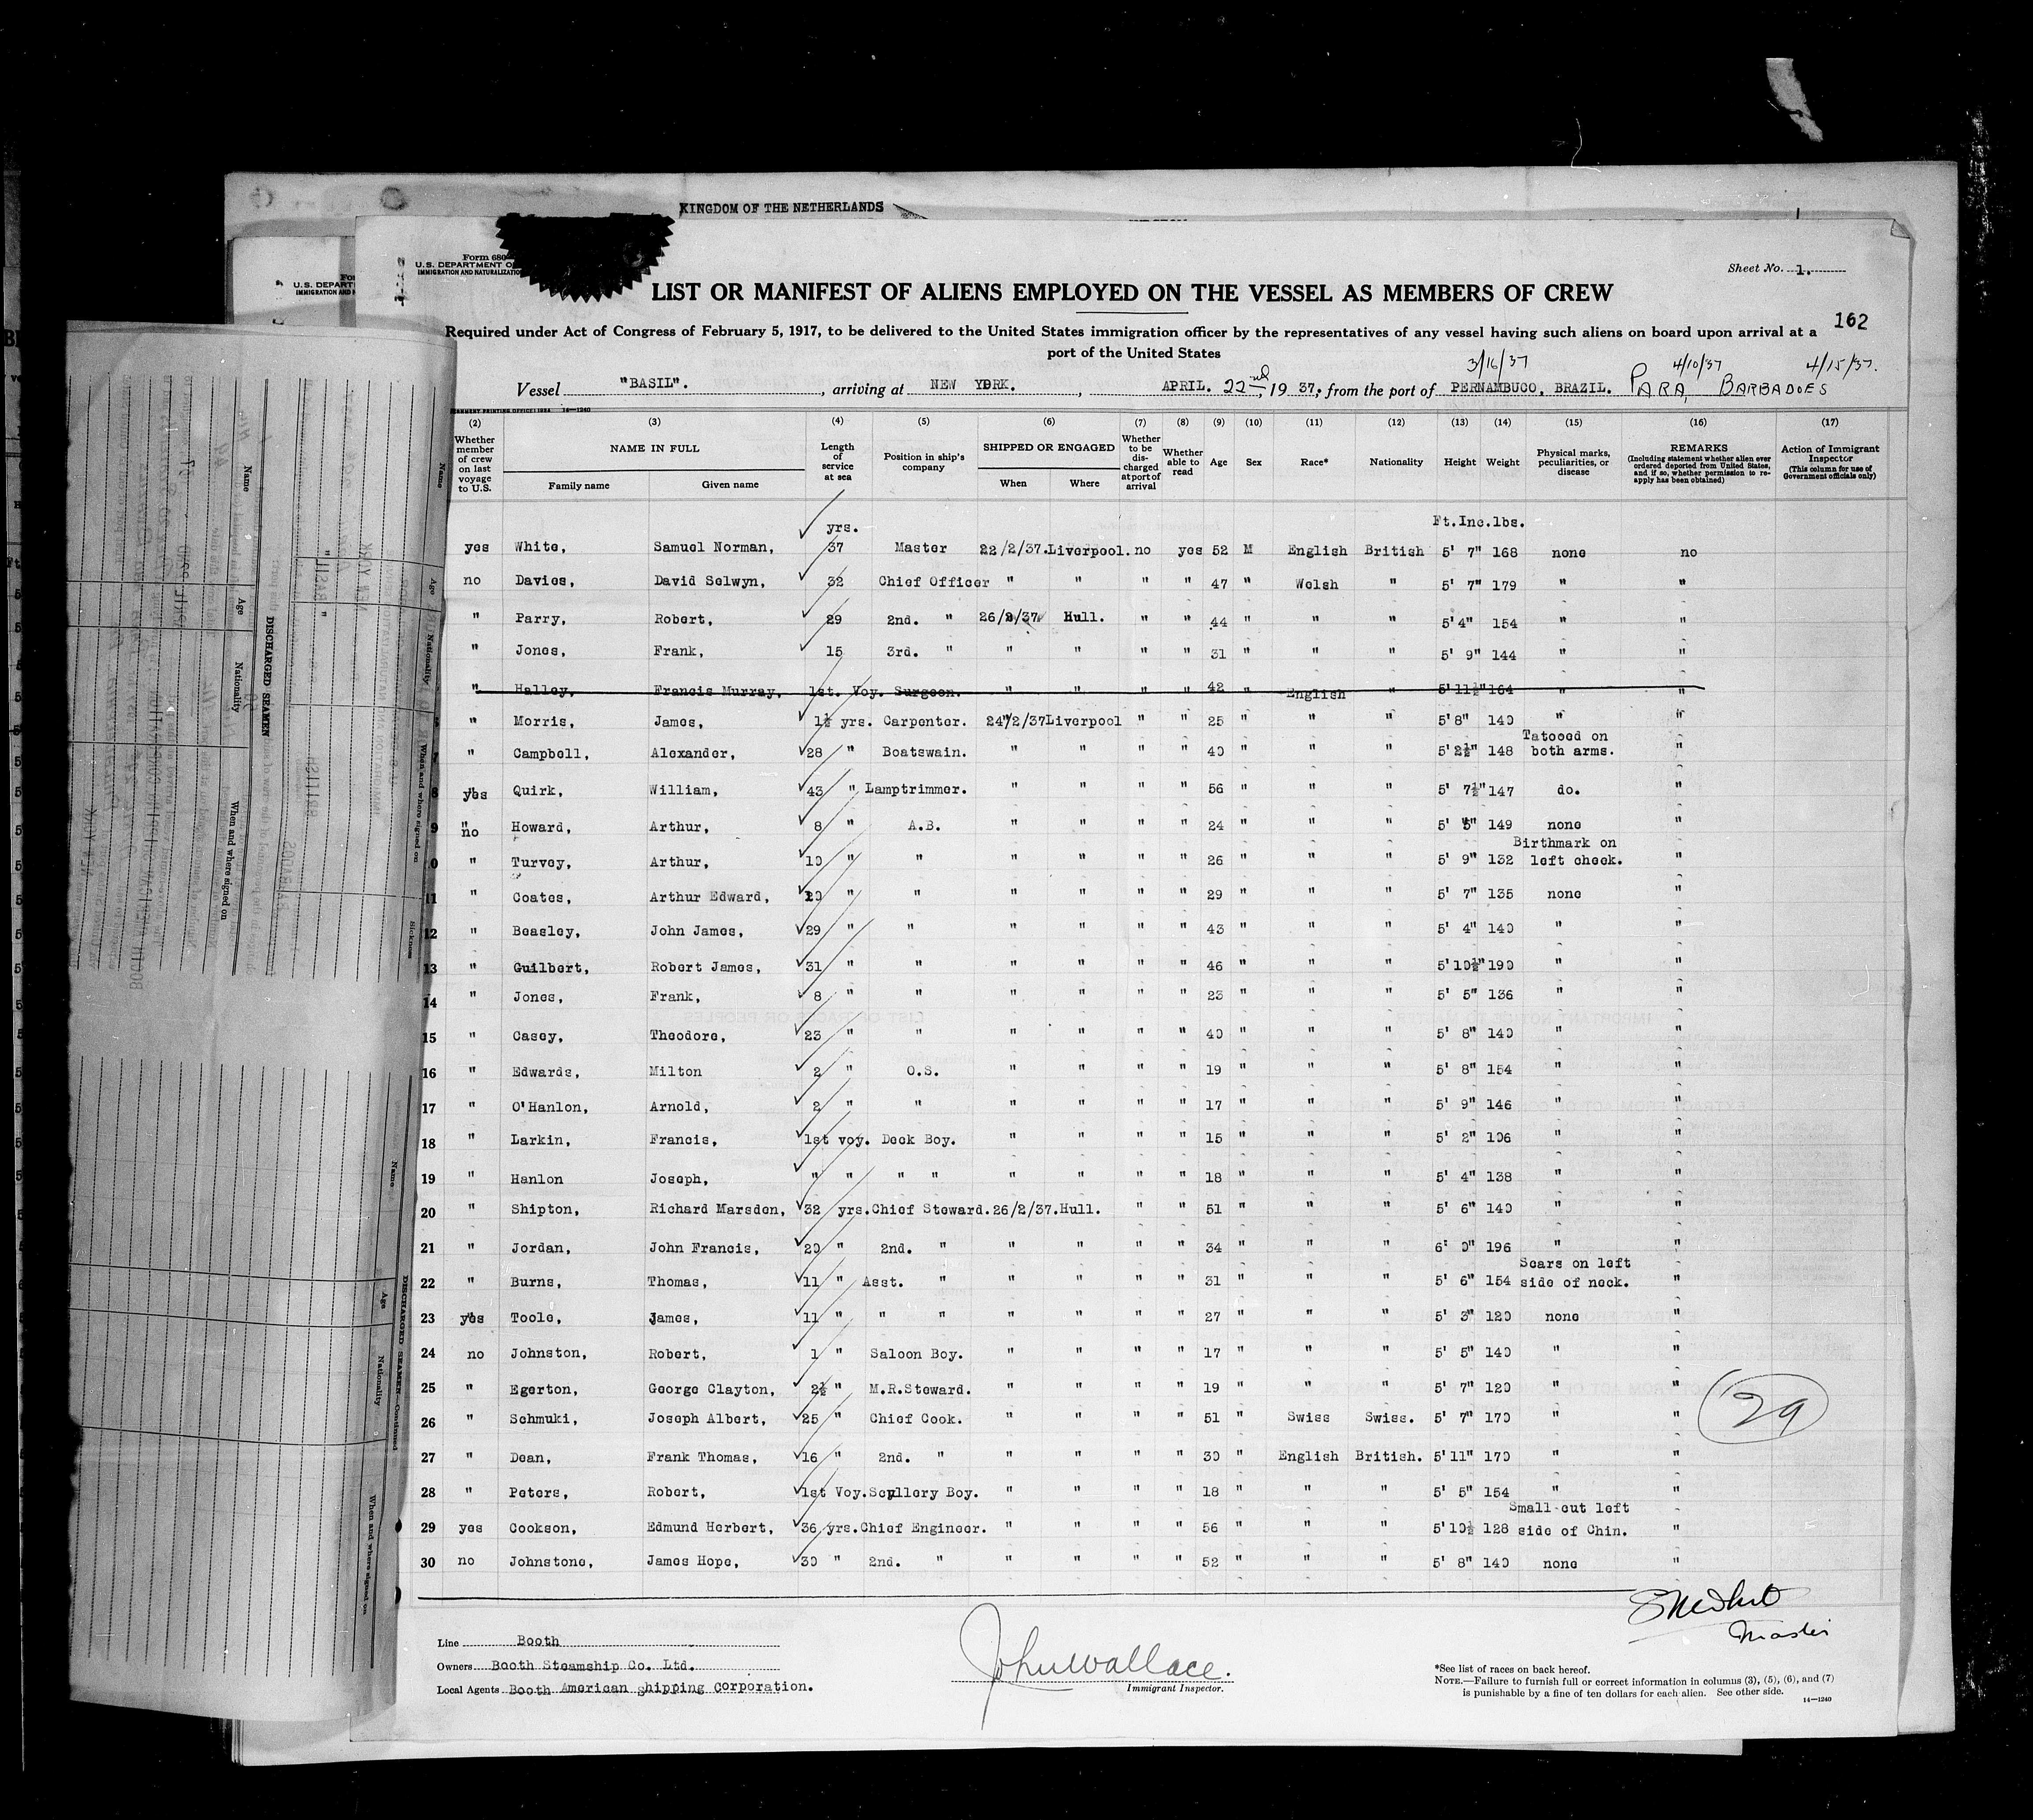 KINGDOM OF THE NETHERLANDS
Form 680
U.S. DEPARTMENT O
IMMIGRATION AND NATURALIZATIO
Sheet No. 1.
LIST OR MANIFEST OF ALIENS EMPLOYED ON THE VESSEL AS MEMBERS OF CREW
162
Required under Act of Congress of February 5, 1917, to be delivered to the United States immigration officer by the representatives of any vessel having such aliens on board upon arrival at a
port of the United States
3/16/37 4/10/37 4/15/37.
Vessel "BASIL". , arriving at NEW YORK. , APRIL. 22nd, 19 37, from the port of PERNAMBUCO, BRAZIL. PARA, BARBADOES
(2) (3) (4) (5) (6) (7) (8) (9) (10) (11) (12) (13) (14) (15) (16) (17)
Whether member of crew on last voyage to U.S. NAME IN FULL Family name Given name Length of service at sea Position in ship's company SHIPPED OR ENGAGED When Where Whether to be discharged at port of arrival Whether able to read Age Sex Race* Nationality Height Weight Physical marks, peculiarities, or disease REMARKS (Including statement whether alien ever ordered deported from United States, and if so, whether permission to reapply has been obtained) Action of Immigrant Inspector (This column for use of Government officials only)
yrs. Ft.Inc.lbs.
yes White, Samuel Norman, 37 Master 22/2/37. Liverpool. no yes 52 M English British 5' 7" 168 none no
no Davies, David Selwyn, 32 Chief Officer " " " " 47 " Welsh " 5' 7" 179 " "
" Parry, Robert, 29 2nd. " 26/2/37 Hull. " " 44 " " " 5' 4" 154 " "
" Jones, Frank, 15 3rd. " " " " " 31 " " " 5' 9" 144 " "
" Halley, Francis Murray, 1st. Voy. Surgeon. " " " " 42 " English " 5' 11½" 164 " "
" Morris, James, 1½ yrs. Carpenter. 24/2/37 Liverpool " " 25 " " " 5'8" 140 " "
" Campbell, Alexander, 28 " Boatswain. " " " " 40 " " " 5' 2½" 148 Tatooed on both arms. "
8 yes Quirk, William, 43 " Lamptrimmer. " " " " 56 " " " 5' 7½" 147 do. "
9 no Howard, Arthur, 8 " A.B. " " " " 24 " " " 5' 5" 149 none "
10 " Turvey, Arthur, 10 " " " " " " 26 " " " 5' 9" 132 Birthmark on left cheek. "
11 " Coates, Arthur Edward, 10 " " " " " " 29 " " " 5' 7" 135 none "
12 " Beasley, John James, 29 " " " " " " 43 " " " 5' 4" 140 " "
13 " Guilbert, Robert James, 31 " " " " " " 46 " " " 5'10½" 190 " "
14 " Jones, Frank, 8 " " " " " " 23 " " " 5' 5" 136 " "
15 " Casey, Theodore, 23 " " " " " " 40 " " " 5' 8" 140 " "
16 " Edwards, Milton 2 " O.S. " " " " 19 " " " 5' 8" 154 " "
17 " O'Hanlon, Arnold, 2 " " " " " " 17 " " " 5' 9" 146 " "
18 " Larkin, Francis, 1st voy. Deck Boy. " " " " 15 " " " 5' 2" 106 " "
19 " Hanlon Joseph, " " " " " " " " 18 " " " 5' 4" 138 " "
20 " Shipton, Richard Marsden, 32 yrs. Chief Steward. 26/2/37. Hull. " " 51 " " " 5' 6" 140 " "
21 " Jordan, John Francis, 20 " 2nd. " " " " " 34 " " " 6' 0" 196 " "
22 " Burns, Thomas, 11 " Asst. " " " " " 31 " " " 5' 6" 154 Scars on left side of neck. "
23 yes Toole, James, 11 " " " " " " " 27 " " " 5' 3" 120 none "
24 no Johnston, Robert, 1 " Saloon Boy. " " " " 17 " " " 5' 5" 140 " "
25 " Egerton, George Clayton, 2½ " M.R.Steward. " " " " 19 " " " 5' 7" 120 " "
29
26 " Schmuki, Joseph Albert, 25 " Chief Cook. " " " " 51 " Swiss Swiss. 5' 7" 170 " "
27 " Dean, Frank Thomas, 16 " 2nd. " " " " " 30 " English British. 5'11" 170 " "
28 " Peters, Robert, 1st Voy. Scullery Boy. " " " " 18 " " " 5' 5" 154 " "
29 yes Cookson, Edmund Herbert, 36 yrs. Chief Engineer. " " " " 56 " " " 5'10½ 128 Small cut left side of Chin. "
30 no Johnstone, James Hope, 30 " 2nd. " " " " " 52 " " " 5' 8" 140 none "
Master
Line Booth
Owners Booth Steamship Co. Ltd.
Local Agents Booth American Shipping Corporation.
John Wallace.
Immigrant Inspector.
*See list of races on back hereof.
NOTE.—Failure to furnish full or correct information in columns (3), (5), (6), and (7)
is punishable by a fine of ten dollars for each alien. See other side.
14—1240